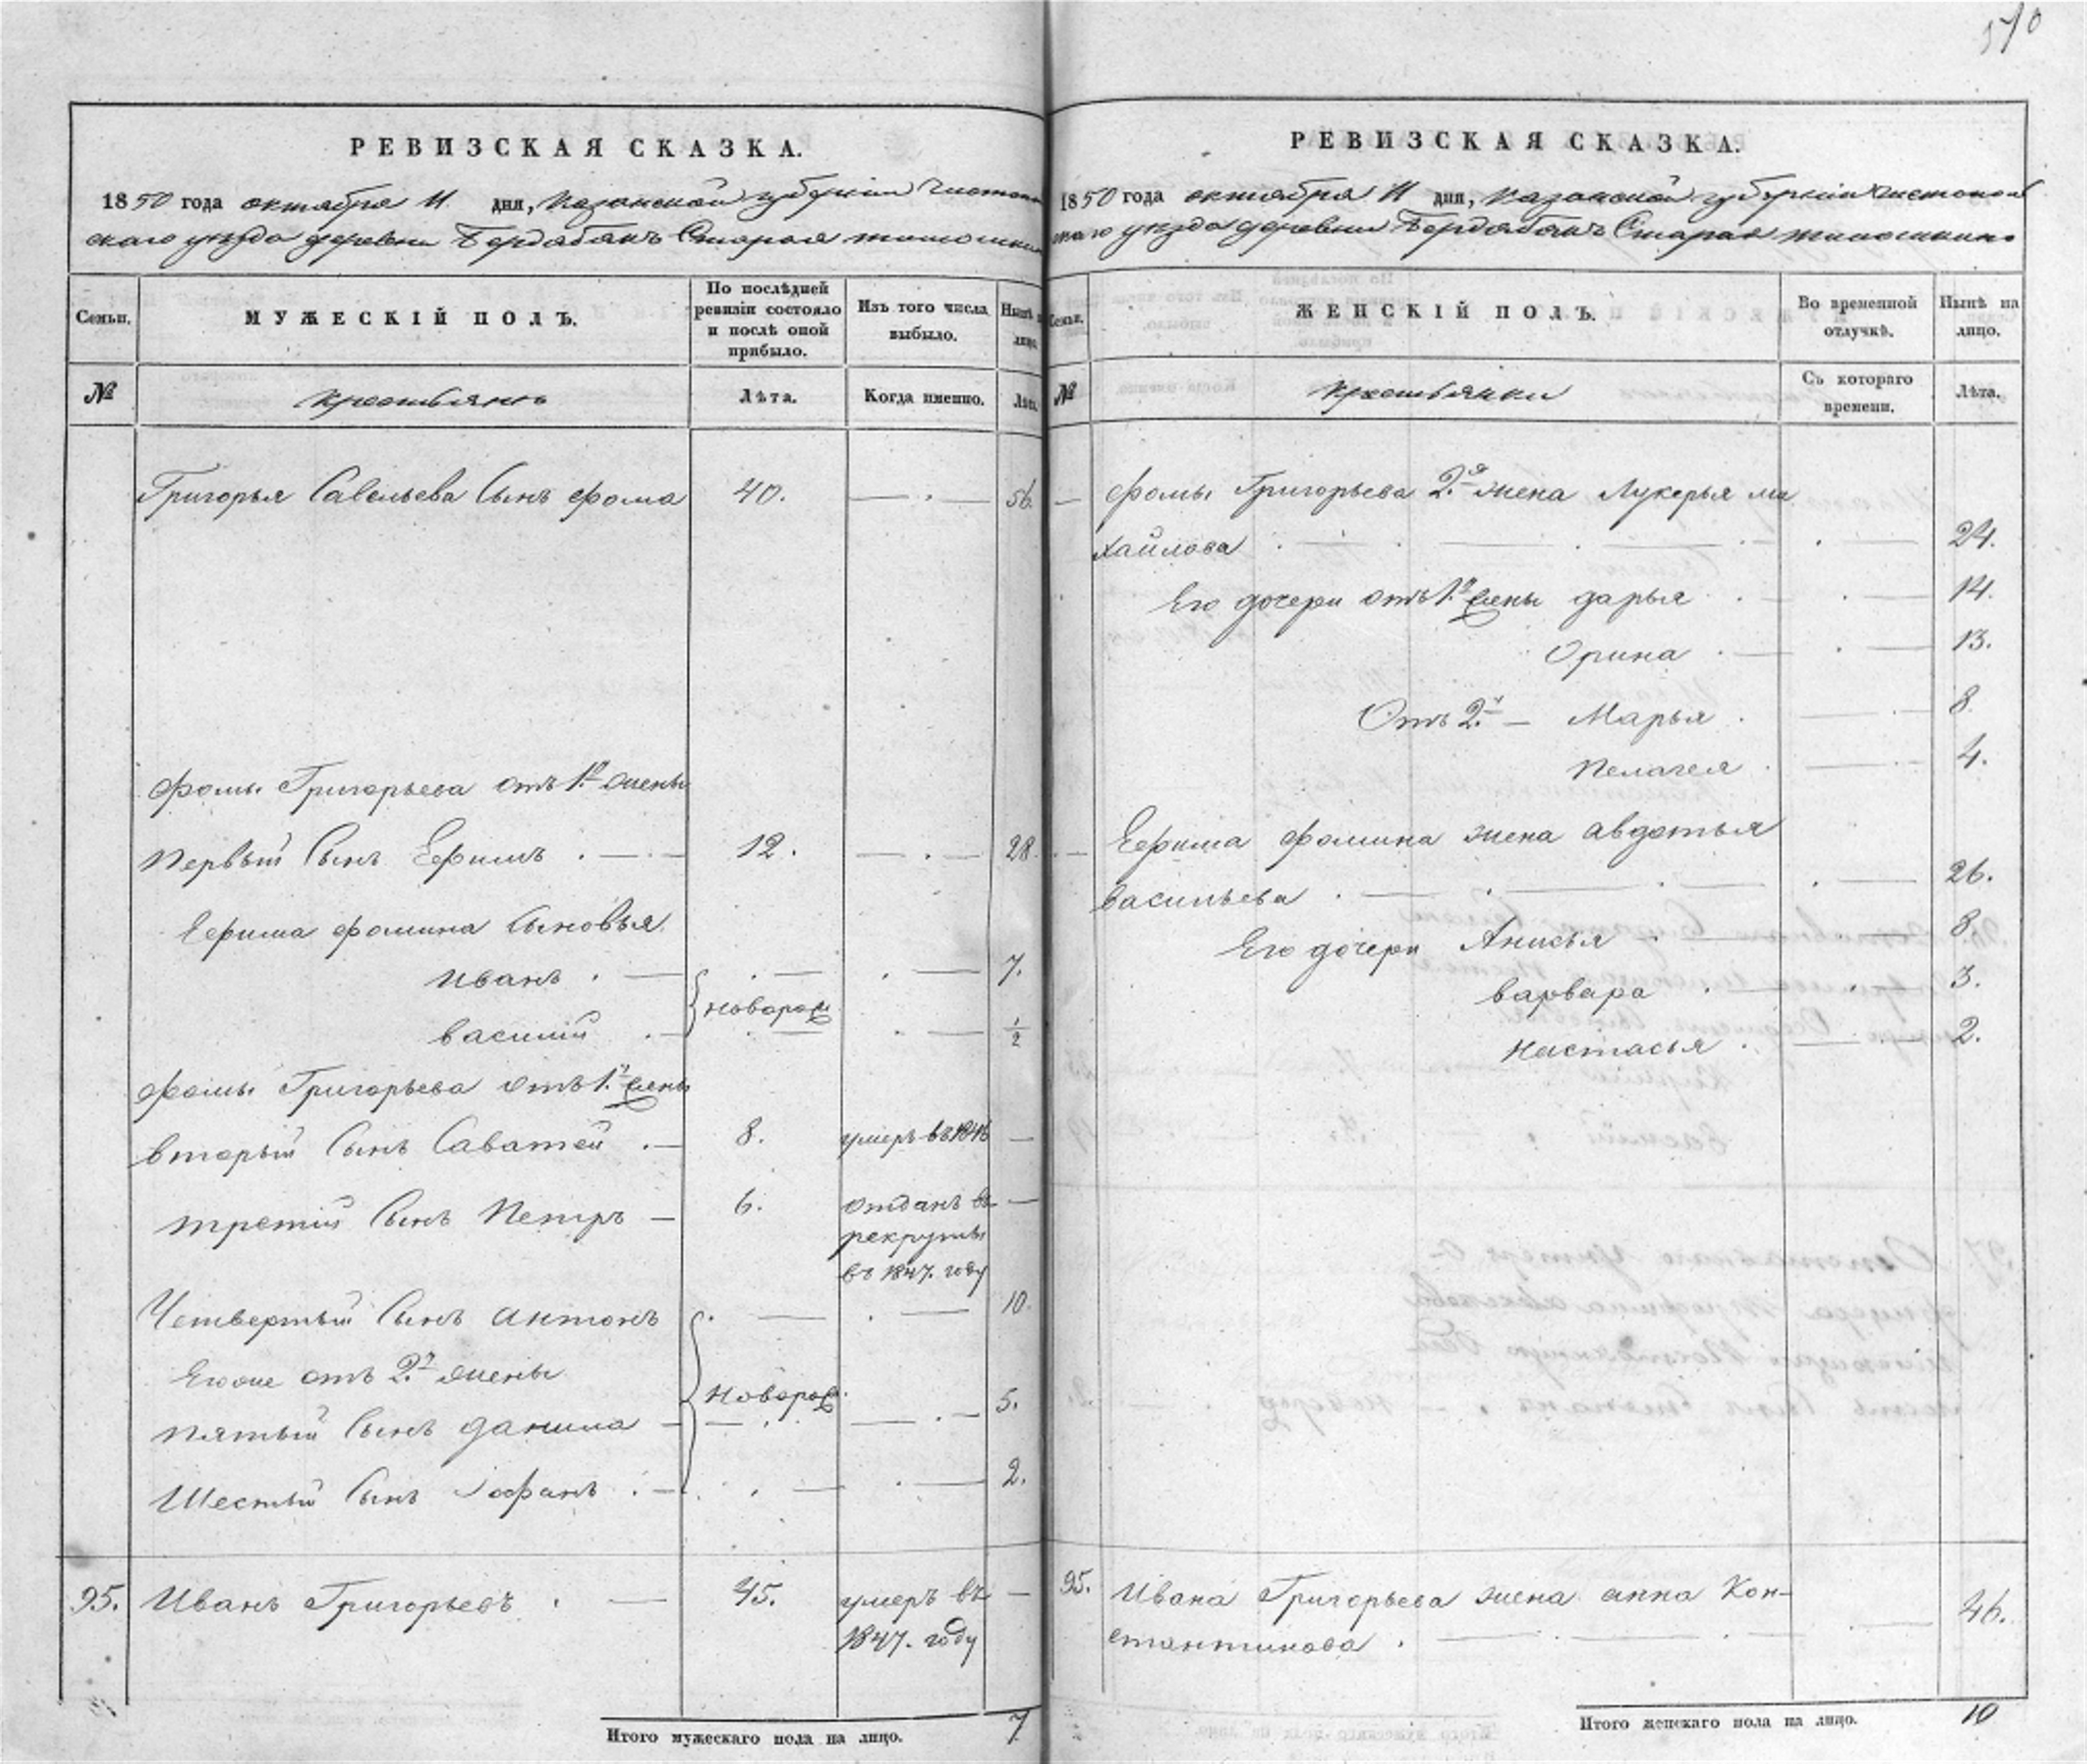 570
РЕВИЗСКАЯ СКАЗКА.
1850 года октября 11 дня, Казанской губернiи Чистопол
скаго уѣзда деревни Бердебякъ Старая тимошкино
Семьи.
МУЖЕСКІЙ ПОЛЪ.
По послѣдней ревизіи состояло и послѣ оной прибыло.
Изъ того числа выбыло.
Нынѣ на лицо.
№
крестьянъ
Лѣта.
Когда именно.
Лѣта.
Григорья Савельева Сынъ фома 40. 56.
фомы Григорьева отъ 1й жены
первый Сынъ Ефимъ 12. 28.
Ефима фомина Сыновья
иванъ 7.
новорож
василий ½
фомы Григорьева отъ 1й жены
вторый Сынъ Саватей 8. умеръ въ 1846
третий Сынъ Петръ 6. отданъ въ
рекруты
въ 1847. году
Четвертый Сынъ антонъ 10.
Егоже отъ 2й жены
новорож
пятый Сынъ данила 5.
Шестый Сынъ 2.
95. Иванъ Григорьевъ 45. умеръ въ
1847. году
Итого мужескаго пола на лицо. 7
РЕВИЗСКАЯ СКАЗКА.
1850 года октября 11 дня, Казанской губернiи Чистопол
скаго уѣзда деревни Бердебякъ Старая тимошкино
Семьи.
ЖЕНСКІЙ ПОЛЪ.
Во временной отлучкѣ.
Нынѣ на лицо.
№
крестьянки
Съ котораго времени.
Лѣта.
фомы Григорьева 2я жена Лукерья ми
хайлова 24.
Его дочери отъ 1й жены дарья 14.
Орина 13.
Отъ 2й Марья 8
пелагея 4.
Ефима фомина жена авдотья
васильева 26.
Его дочери Анисья 8.
варвара 3.
настасья 2.
95. Ивана Григорьева жена анна Кон-
стантинова 46.
Итого женскаго пола на лицо. 10